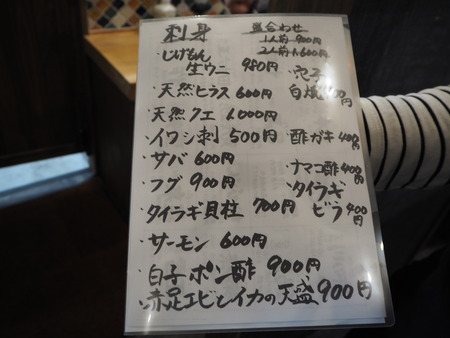 刺身
盛合わせ
1人前 900円
2人前 1,600円
・じげもん
生ウニ 980円
・穴子
白焼
・天然ヒラス 600円
・天然クエ 1,000円
・イワシ刺 500円
・酢ガキ 400円
・サバ 600円
・ナマコ酢 400円
・フグ 900円
・タイラギ
ビラ 400円
・タイラギ貝柱 700円
・サーモン 600円
・白子ポン酢 900円
・赤足エビとイカの天盛 900円